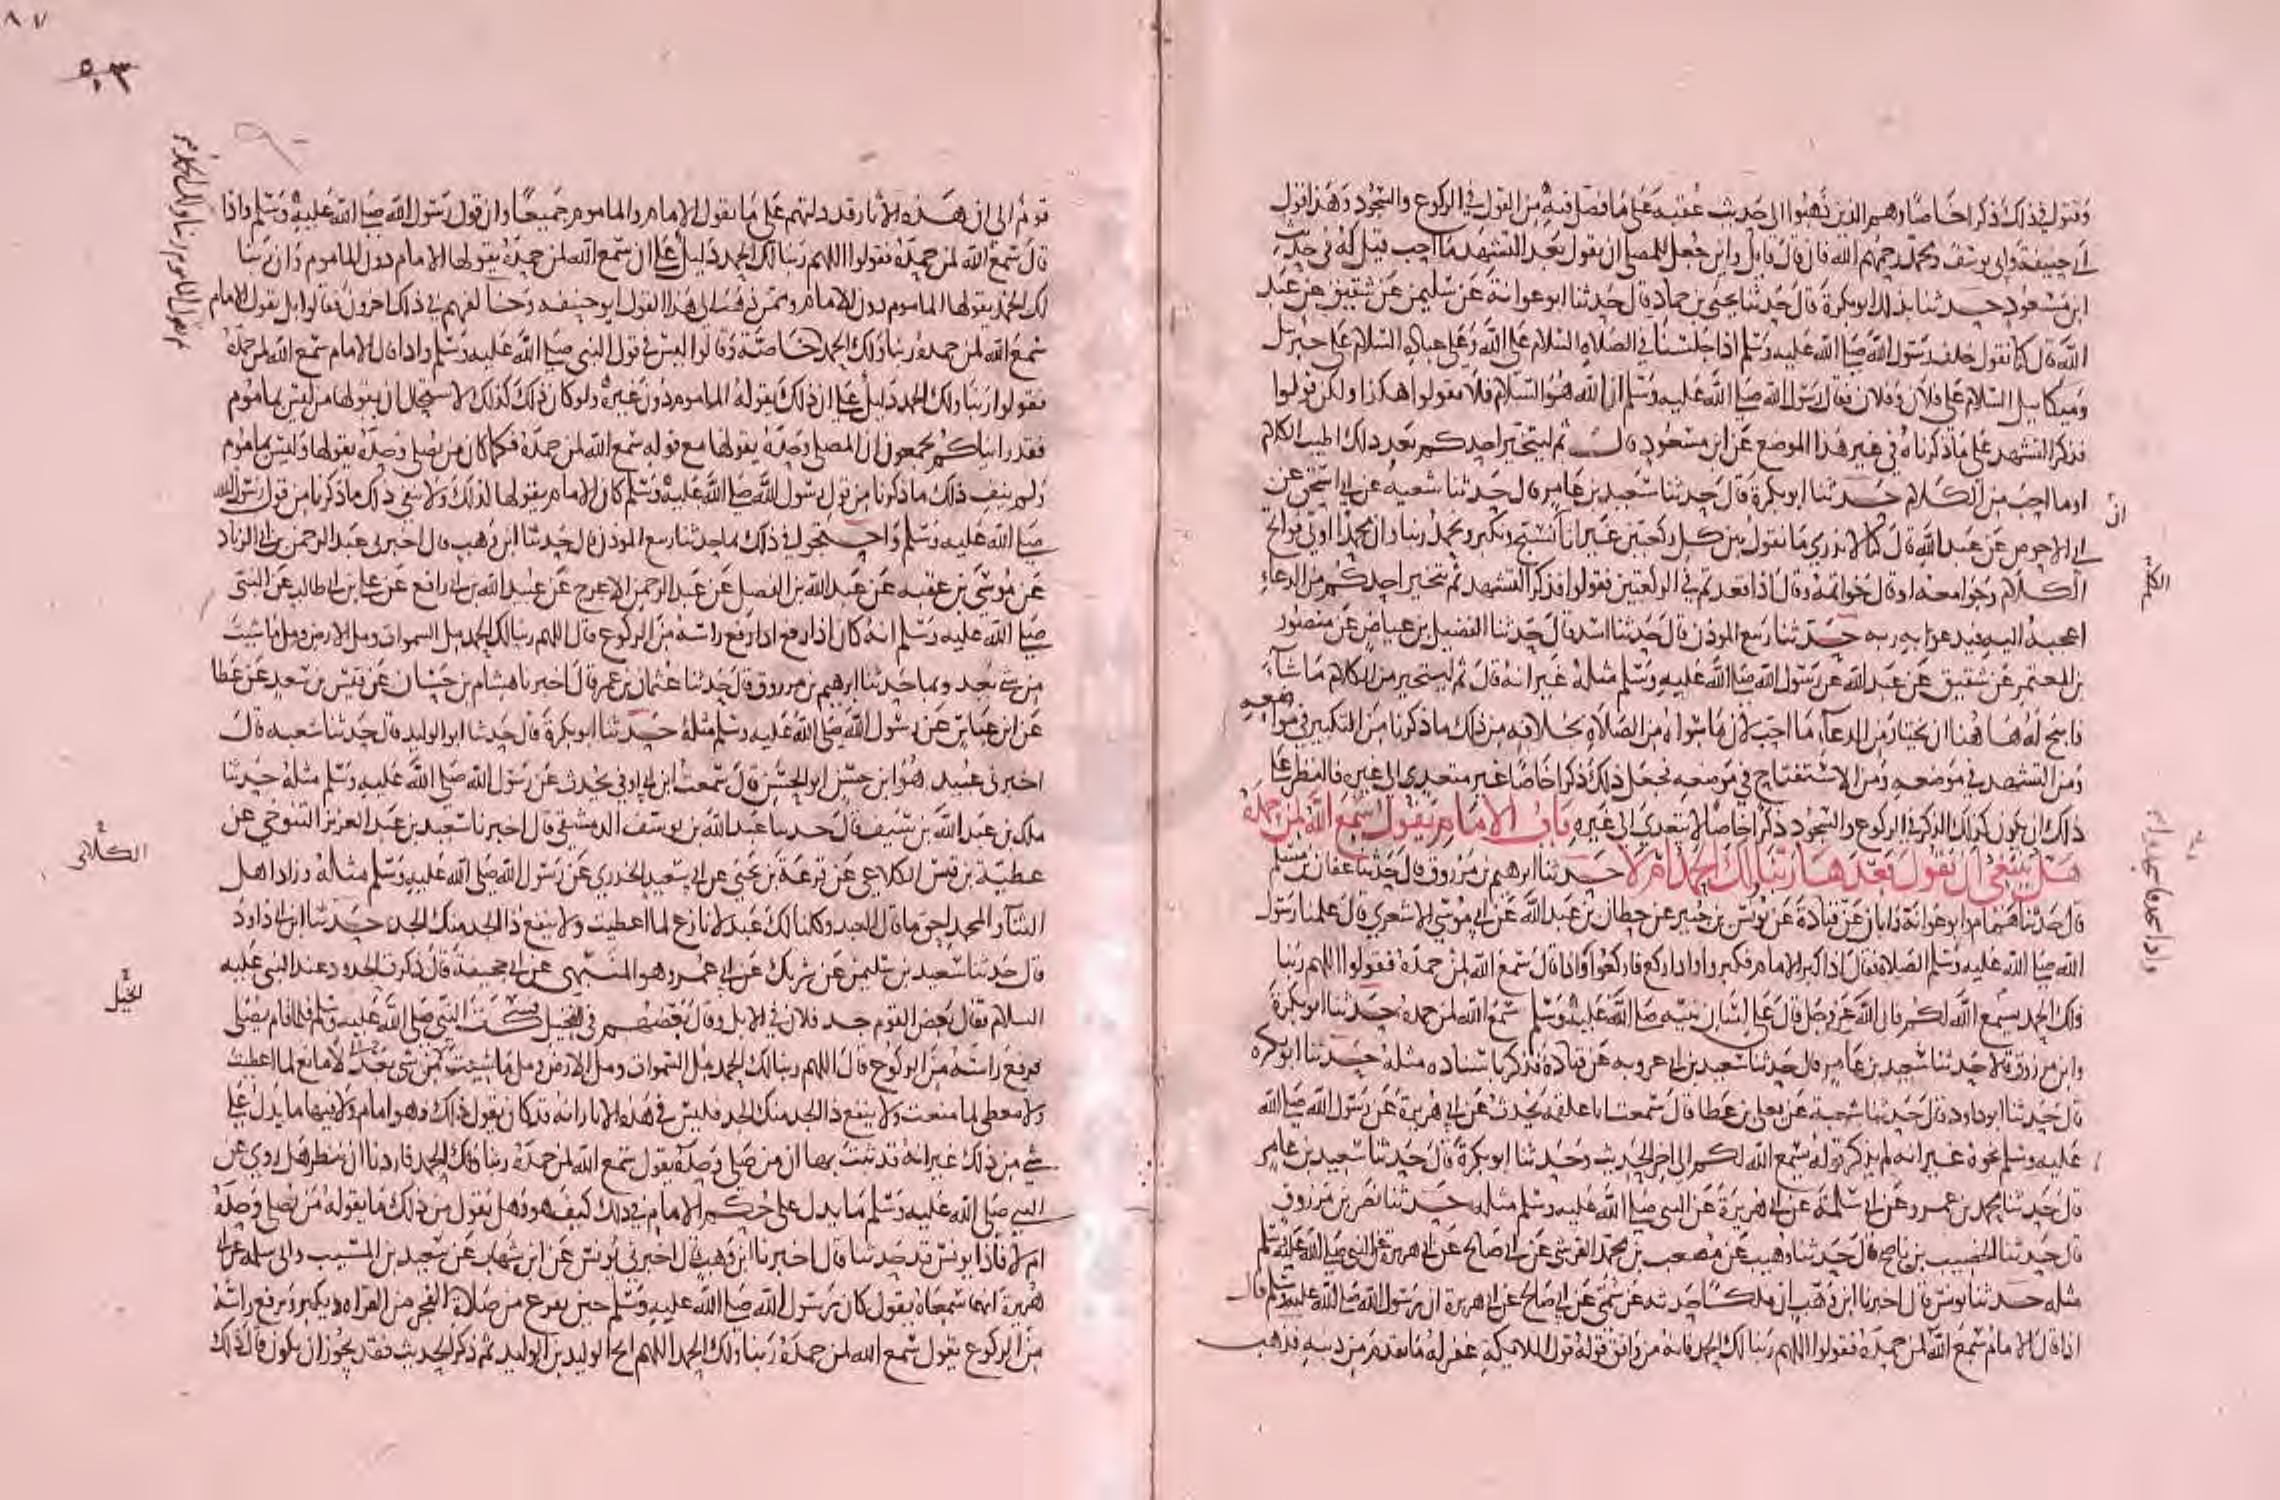 وقوله في ذلك ذكرا خاصا وهم الذين ذهبوا الى حديث عقبة على ما فصل فيه من القول في الركوع والسجود وهذا قول
ابي حنيفة وابي يوسف ومحمد رحمهم الله فان قال قائل واين جعل للمصلي ان يقول بعد التشهد ما احب قيل له في حديث
ابن مسعود حدثنا بذلك ابو بكرة قال حدثنا يحيى بن حماد قال حدثنا ابو عوانة عن سليمن عن شقيق عن عبد
الله قال كنا نقول خلف رسول الله صلى الله عليه وسلم اذا جلسنا في الصلاة السلام على الله وعلى عباده السلام على جبريل
وميكاييل السلام على فلان وفلان فقال رسول الله صلى الله عليه وسلم ان الله هو السلام فلا تقولوا هكذا ولكن قولوا
فذكر التشهد على ما ذكرناه في غير هذا الموضع عن ابن مسعود قال ثم ليتخير احدكم بعد ذلك اطيب الكلام
او ما احب من الكلام حدثنا ابو بكرة قال حدثنا سعيد بن عامر قال حدثنا شعبة عن ابي اسحق عن
ابي الاحوص عن عبد الله قال كنا لا ندري ما نقول بين كل ركعتين غير انا نسبح ونكبر ونحمد ربنا وان محمدا اوتي فواتح
الكلام وجوامعه او قال خواتمه وقال اذا قعدتم في الركعتين فقولوا فذكر التشهد ثم يتخير احدكم من الدعاء
اعجبه اليه فيدعوا به ربه حدثنا ربيع المؤذن قال حدثنا اسد قال حدثنا الفضيل بن عياض عن منصور
بن المعتمر عن شقيق عن عبد الله عن رسول الله صلى الله عليه وسلم مثله غير انه قال ثم ليتخير من الكلام ما شاء
فابيح له ها هنا ان يختار من الدعاء ما احب لان ما سواه من الصلاة بخلافه من ذلك ما ذكرنا من التكبير في مواضعه
ومن التشهد في موضعه ومن الاستفتاح في موضعه فجعل ذلك ذكرا خاصا غير متعدي الى غيره فالنظر على
ذلك ان يكون كذلك الذكر في الركوع والسجود ذكرا خاصا لا يتعدى الى غيره باب الامام يقول سمع الله لمن حمده
هل ينبغي ان يقول بعدها ربنا لك الحمد ام لا حدثنا ابرهيم بن مرزوق قال حدثنا عفان بن مسلم
قال حدثنا همام وابو عوانة وابان عن قتادة عن يونس بن جبير عن حطان بن عبد الله عن ابي موسى الاشعري قال علمنا رسول
الله صلى الله عليه وسلم الصلاة فقال اذا كبر الامام فكبروا واذا ركع فاركعوا واذا قال سمع الله لمن حمده فقولوا اللهم ربنا
ولك الحمد يسمع الله لكم فان الله عز وجل قال على لسان نبيه صلى الله عليه وسلم سمع الله لمن حمده حدثنا ابو بكرة
وابن مرزوق قالا حدثنا سعيد بن عامر قال حدثنا سعيد بن ابي عروبة عن قتادة فذكر باسناده مثله حدثنا ابو بكرة
قال حدثنا ابو داود قال حدثنا شعبة عن يعلى بن عطا قال سمعت ابا علقمة يحدث عن ابي هريرة عن رسول الله صلى الله
عليه وسلم نحوه غير انه لم يذكر قوله يسمع الله لكم الى اخر الحديث وحدثنا ابو بكرة قال حدثنا سعيد بن عامر
قال حدثنا محمد بن عمرو عن ابي سلمة عن ابي هريرة عن النبي صلى الله عليه وسلم مثله حدثنا نصر بن مرزوق
قال حدثنا الخصيب بن ناصح قال حدثنا وهيب عن مصعب بن محمد القرشي عن ابي صالح عن ابي هريرة عن النبي صلى الله عليه وسلم
مثله حدثنا يونس قال اخبرنا ابن وهب ان ملكا حدثه عن سمي عن ابي صالح عن ابي هريرة ان رسول الله صلى الله عليه وسلم قال
اذا قال الامام سمع الله لمن حمده فقولوا اللهم ربنا لك الحمد فانه من وافق قوله قول الملايكة غفر له ما تقدم من ذنبه فذهب
ان
الكلام
واذا سجد فاسجدوا
٨٧
٥١٣
قوم الى ان هذه الاثار قد دلتهم على ما يقول الامام والماموم جميعا وان قول رسول الله صلى الله عليه وسلم واذا
قال سمع الله لمن حمده فقولوا اللهم ربنا لك الحمد دليل على ان سمع الله لمن حمده يقولها الامام دون الماموم وان ربنا
لك الحمد يقولها الماموم دون الامام وممن ذهب الى هذا القول ابو حنيفة وخالفهم في ذلك اخرون فقالوا بل يقول الامام
سمع الله لمن حمده ربنا ولك الحمد خاصة وقالوا ليس في قول النبي صلى الله عليه وسلم واذا قال الامام سمع الله لمن حمده
فقولوا ربنا ولك الحمد دليل على ان ذلك يقوله الماموم دون غيره ولو كان ذلك كذلك لاستحال ان يقولها من ليس بماموم
فقد رايناكم تجمعون ان المصلي وحده يقولها مع قوله سمع الله لمن حمده فكما كان من يصلي وحده يقولها وليس بماموم
ولم ينف ذلك ما ذكرنا من قول رسول الله صلى الله عليه وسلم كان الامام يقولها كذلك ولا ينفي ذلك ما ذكرنا من قول رسول الله
صلى الله عليه وسلم واحتجوا في ذلك بما حدثنا ربيع المؤذن قال حدثنا ابن وهب قال اخبرني عبد الرحمن بن ابي الزناد
عن موسى بن عقبة عن عبد الله بن الفضل عن عبد الرحمن الاعرج عن عبيد الله بن ابي رافع عن علي بن ابي طالب عن النبي
صلى الله عليه وسلم انه كان اذا رفع اذا رفع راسه من الركوع قال اللهم ربنا لك الحمد مل السموات ومل الارض ومل ما شيت
من شي بعد وبما حدثنا ابرهيم بن مرزوق قال حدثنا عثمان بن عمر قال اخبرنا هشام بن حسان عن قيس بن سعد عن عطا
عن ابن عباس عن رسول الله صلى الله عليه وسلم مثله حدثنا ابو بكرة قال حدثنا ابو الوليد قال حدثنا شعبة قال
اخبرني عبيد هو ابن حسن ابو الحسن قال سمعت ابن ابي اوفى يحدث عن رسول الله صلى الله عليه وسلم مثله حدثنا
ملك بن عبد الله بن سيف قال حدثنا عبد الله بن يوسف الدمشقي قال اخبرنا سعيد بن عبد العزيز التنوخي عن
عطية بن قيس الكلاعي عن قزعة بن يحيى عن ابي سعيد الخدري عن رسول الله صلى الله عليه وسلم مثله وزاد اهل
الثنا والمجد احق ما قال العبد وكلنا لك عبد لا نازع لما اعطيت ولا ينفع ذا الجد منك الجد حدثنا ابن ابي داود
قال حدثنا سعيد بن سليمن عن شريك عن ابي عمر وهو المنبهي عن ابي جحيفة قال ذكرت الجدود عند النبي عليه
السلام فقال بعض القوم جد فلان في الابل وقال بعضهم في الخيل فسكت النبي صلى الله عليه وسلم فلما قام يصلي
فرفع راسه من الركوع قال اللهم ربنا لك الحمد مل السموات ومل الارض ومل ما شيت من شي بعد لا مانع لما اعطيت
ولا معطي لما منعت ولا ينفع ذا الجد منك الجد فليس في هذه الاثار انه قد كان يقول ذلك وهو امام ولا فيها ما يدل على
شي من ذلك غير انه قد ثبت بها ان من صلى وحده يقول سمع الله لمن حمده ربنا ولك الحمد فاردنا ان ننظر هل روي عن
النبي صلى الله عليه وسلم ما يدل على حكم الامام في ذلك كيف هو وهل يقول من ذلك ما يقوله من يصلي وحده
ام لا فاذا يونس قد حدثنا قال اخبرنا ابن وهب قال اخبرني يونس عن ابن شهاب عن سعيد بن المسيب وابي سلمة عن ابي
هريرة انهما سمعاه يقول كان رسول الله صلى الله عليه وسلم حين يفرغ من صلاة الفجر من القراة ويكبر ويرفع راسه
من الركوع يقول سمع الله لمن حمده ربنا ولك الحمد اللهم انج الوليد بن الوليد ثم ذكر الحديث فقد يجوز ان يكون قال ذلك
الكلاعي
الخيل